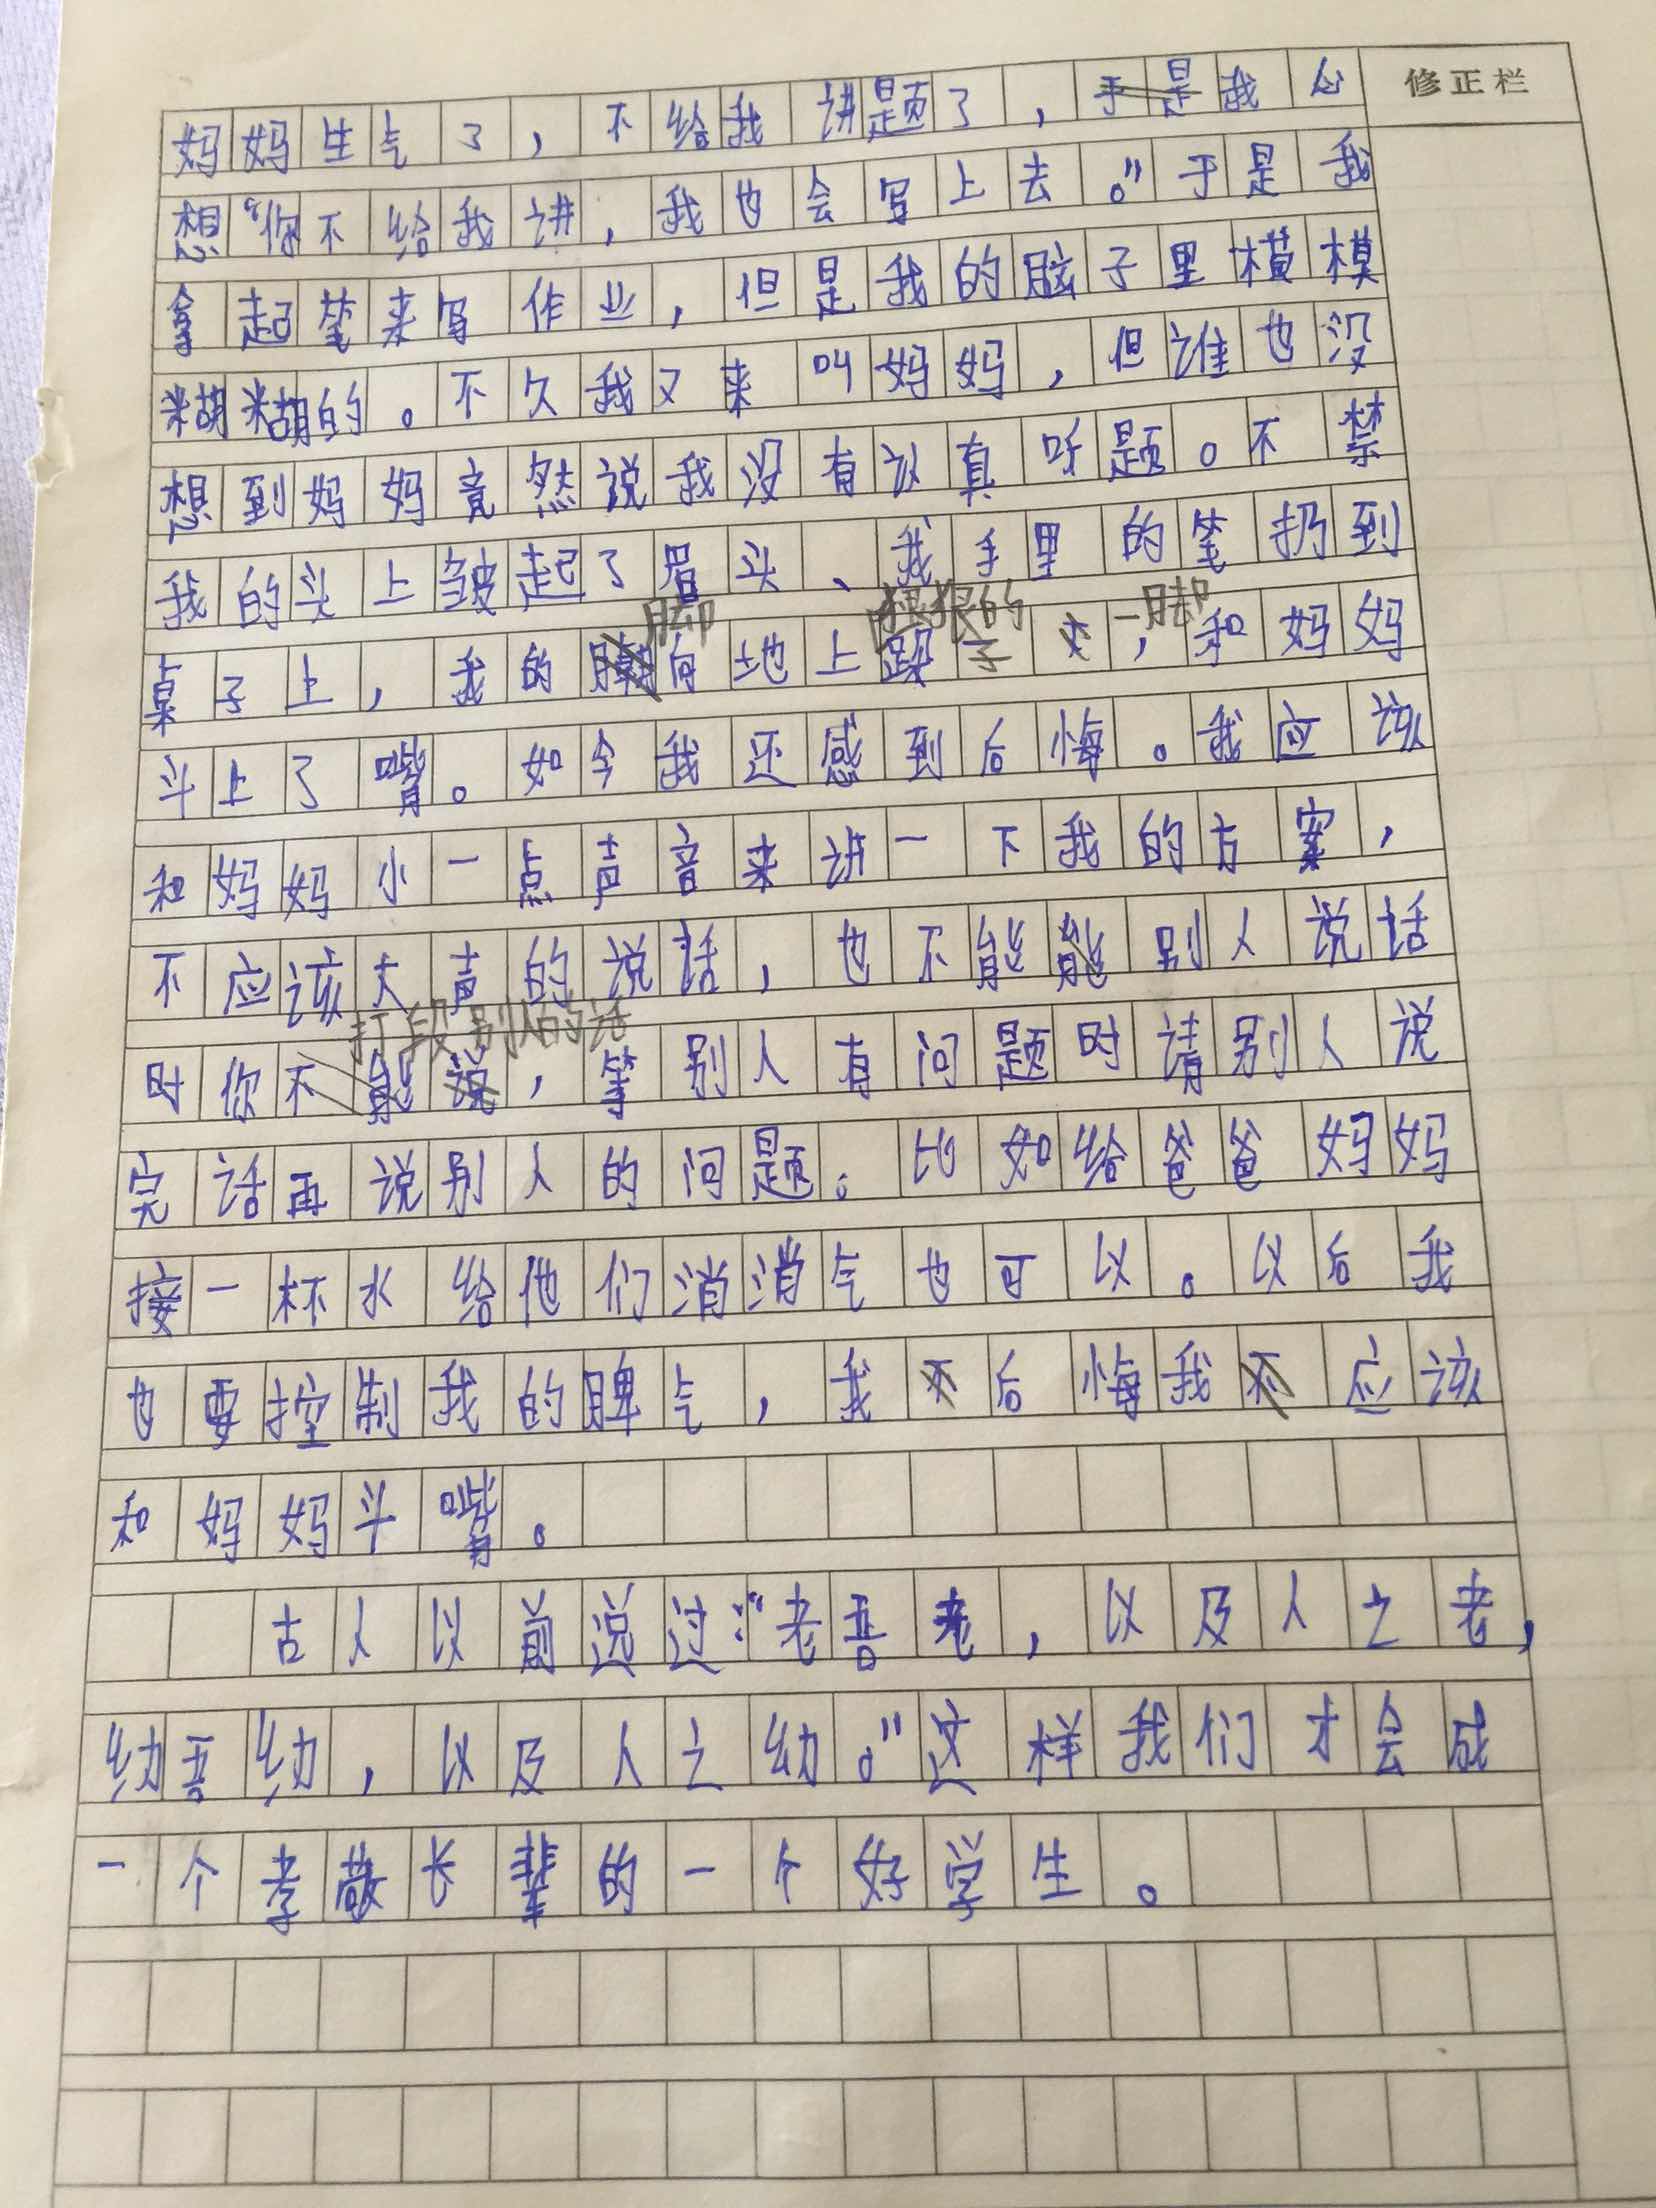 修正栏
妈妈生气了，不给我讲题了，于是我心
想“你不给我讲，我也会写上去。”于是我
拿起笔来写作业，但是我的脑子里模模
糊糊的。不久我又来叫妈妈，但谁也没
想到妈妈竟然说我没有认真听题。不禁
我的头上皱起了眉头、我手里的笔扔到
脚 狠狠的 一脚
桌子上，我的向地上跺子，和妈妈
斗上了嘴。如今我还感到后悔。我应该
和妈妈小一点声音来讲一下我的方案，
不应该大声的说话，也不能能别人说话
打段别人的话
时你不能说，等别人有问题时请别人说
完话再说别人的问题。比如给爸爸妈妈
接一杯水给他们消消气也可以。以后我
也要控制我的脾气，我不后悔我不应该
和妈妈斗嘴。
古人以前说过：“老吾老，以及人之老，
幼吾幼，以及人之幼。”这样我们才会成
一个孝敬长辈的一个好学生。